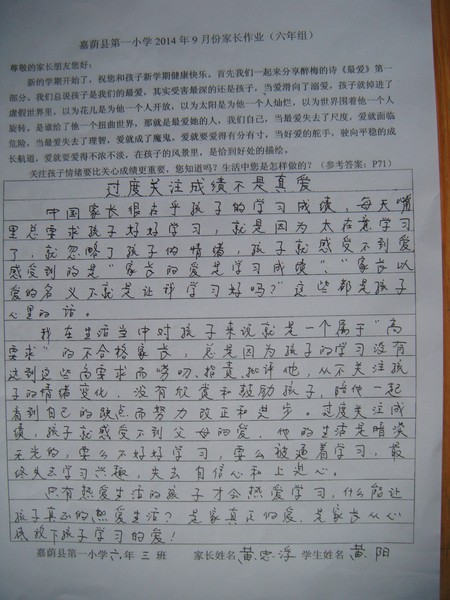 嘉荫县第一小学2014年9月份家长作业（六年组）
尊敬的家长朋友您好：
新的学期开始了，祝您和孩子新学期健康快乐，首先我们一起来分享醉梅的诗《最爱》第一
部分。我们总说孩子是我们的最爱，其实受害最深的还是孩子，当爱滑向了溺爱，孩子就掉进了
虚假世界里，以为花儿是为他一个人开放，以为太阳是为他一个人灿烂，以为世界围着他一个人
旋转，是谁给了他一个扭曲世界，那就是最爱她的人，我们自己，当最爱失去了尺度，爱就面临
危险，当最爱失去了理智，爱就成了魔鬼，爱就要爱得有分有寸，当好爱的舵手，驶向平稳的成
长航道，爱就要爱得不浓不淡，在孩子的风景里，是恰到好处的描绘。
关注孩子情绪要比关心成绩更重要，您知道吗？生活中您是怎样做的？（参考答案：P71）
过度关注成绩不是真爱
中国家长很在乎孩子的学习成绩，每天嘴
里总要求孩子好好学习，就是因为太在意学习
了，就忽略了孩子的情绪，孩子就感受不到爱
感受到的是“家长的爱是学习成绩”，“家长以
爱的名义不就是让我学习好吗？”这些都是孩子
心里的话。
我在生活当中对孩子来说就是一个属于“高
要求”的不合格家长，总是因为孩子的学习没有
达到这些高要求而唠叨、指责、批评他，从不关注孩
子的情绪变化，没有欣赏和鼓励孩子，陪他一起
看到自己的缺点而努力改正和进步。过度关注成
绩，孩子就感受不到父母的爱，他的生活是暗淡
无光的，要么不好好学习，要么被逼着学习，最
终失去学习兴趣，失去自信心和上进心。
只有热爱生活的孩子才会热爱学习，什么能让
孩子真正的热爱生活？是家真正的爱，是家长从心
底放下孩子学习的爱！
嘉荫县第一小学六年三班 家长姓名黄忠浮 学生姓名黄阳